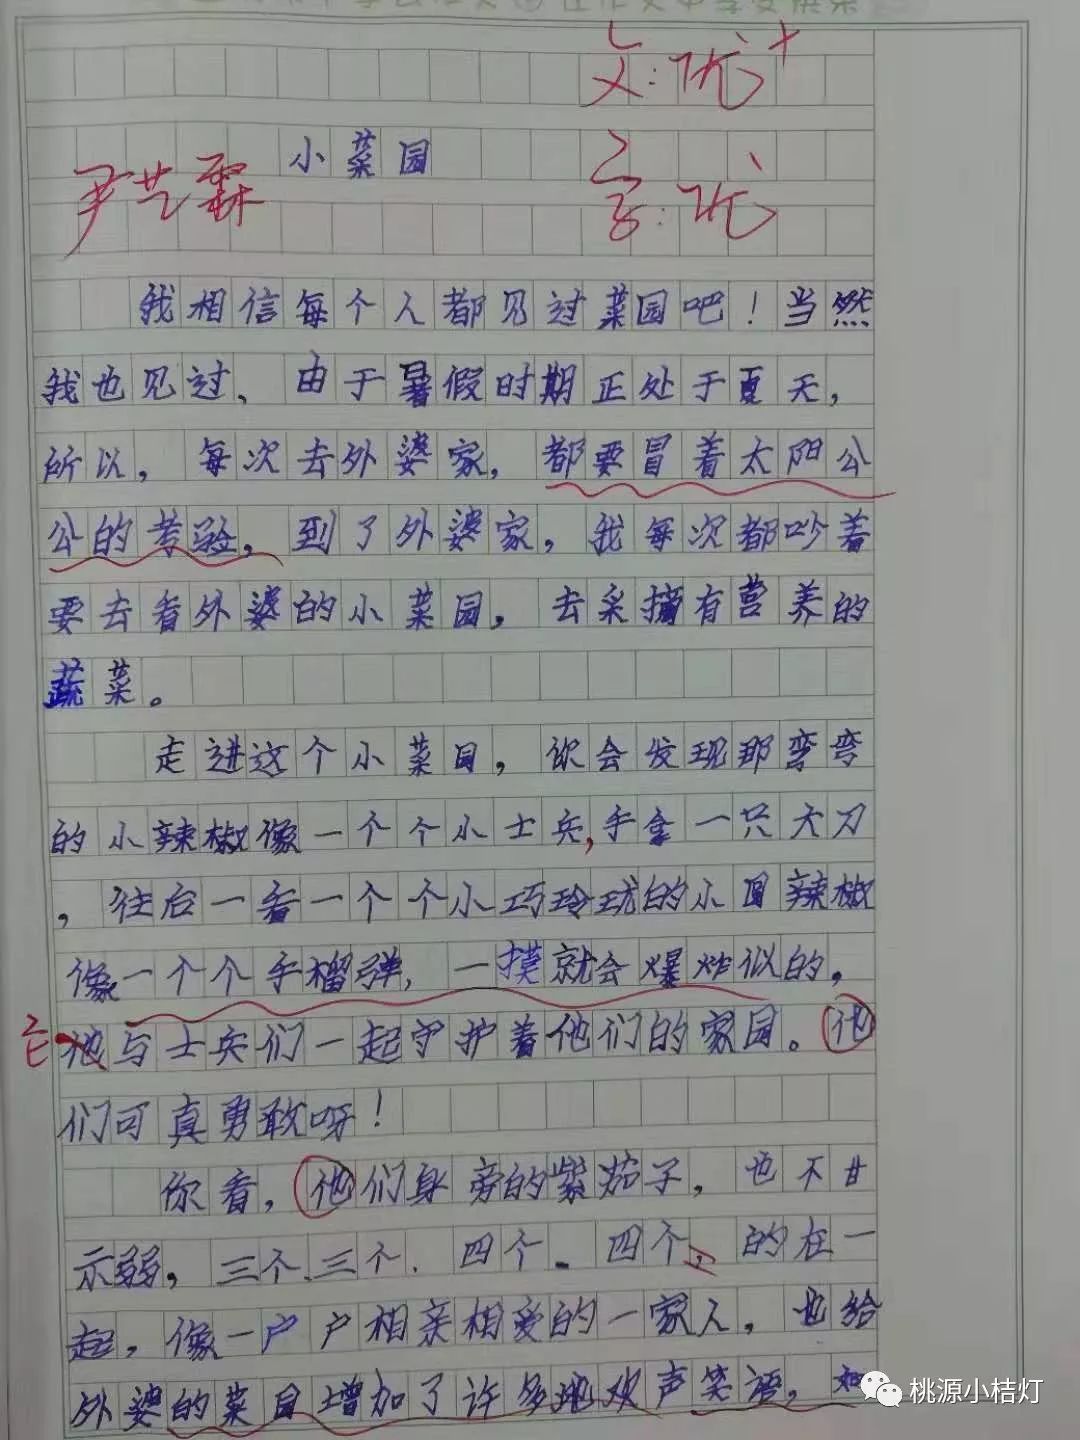 文：优+
小菜园
尹艺霖
字：优
我相信每个人都见过菜园吧！当然
我也见过、由于暑假时期正处于夏天，
所以，每次去外婆家，都要冒着太阳公
公的考验，到了外婆家，我每次都吵着
要去看外婆的小菜园，去采摘有营养的
蔬菜。
走进这个小菜园，你会发现那弯弯
的小辣椒像一个个小士兵，手拿一只大刀
，往后一看一个个小巧玲珑的小圆辣椒
像一个个手榴弹，一摸就会爆炸似的，
它
他与士兵们一起守护着他们的家园。他
们可真勇敢呀！
你看，他们身旁的紫茄子，也不甘
示弱，三个、三个、四个、四个、的在一
起，像一户户相亲相爱的一家人，也给
外婆的菜园增加了许多欢声笑语，如
桃源小桔灯